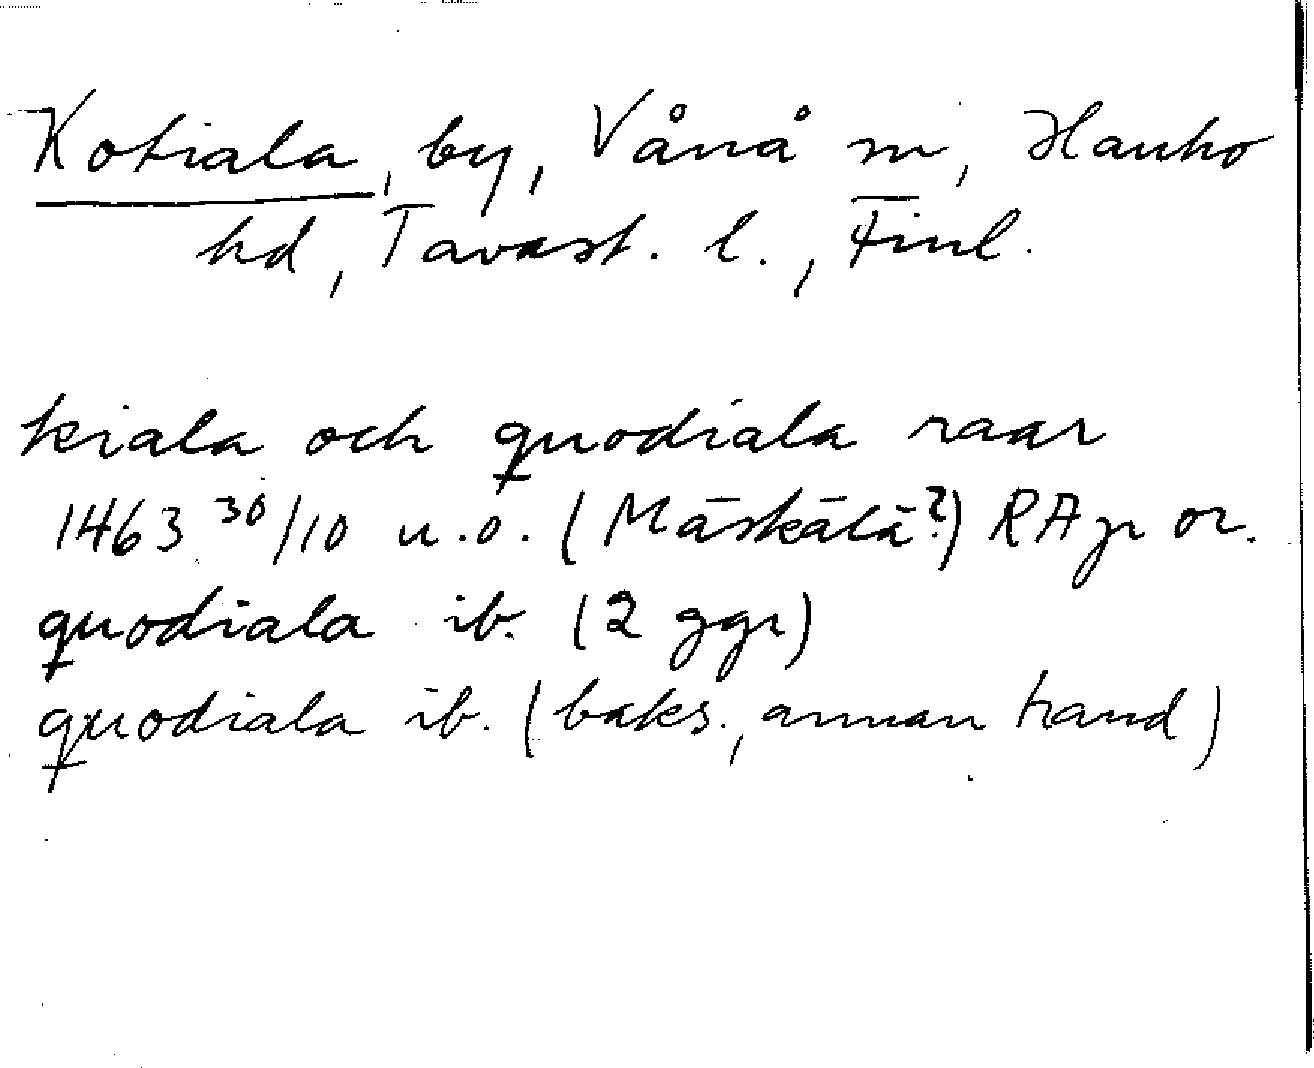 Kotiala, by, Vånå sn, Hauho
hd, Tavast. l., Finl.
kiala och quodiala raar
1463 30/10 u.o. (Mäskälä?) RAp or.
quodiala ib. (2 ggr)
quodiala ib. (baks., annan hand)